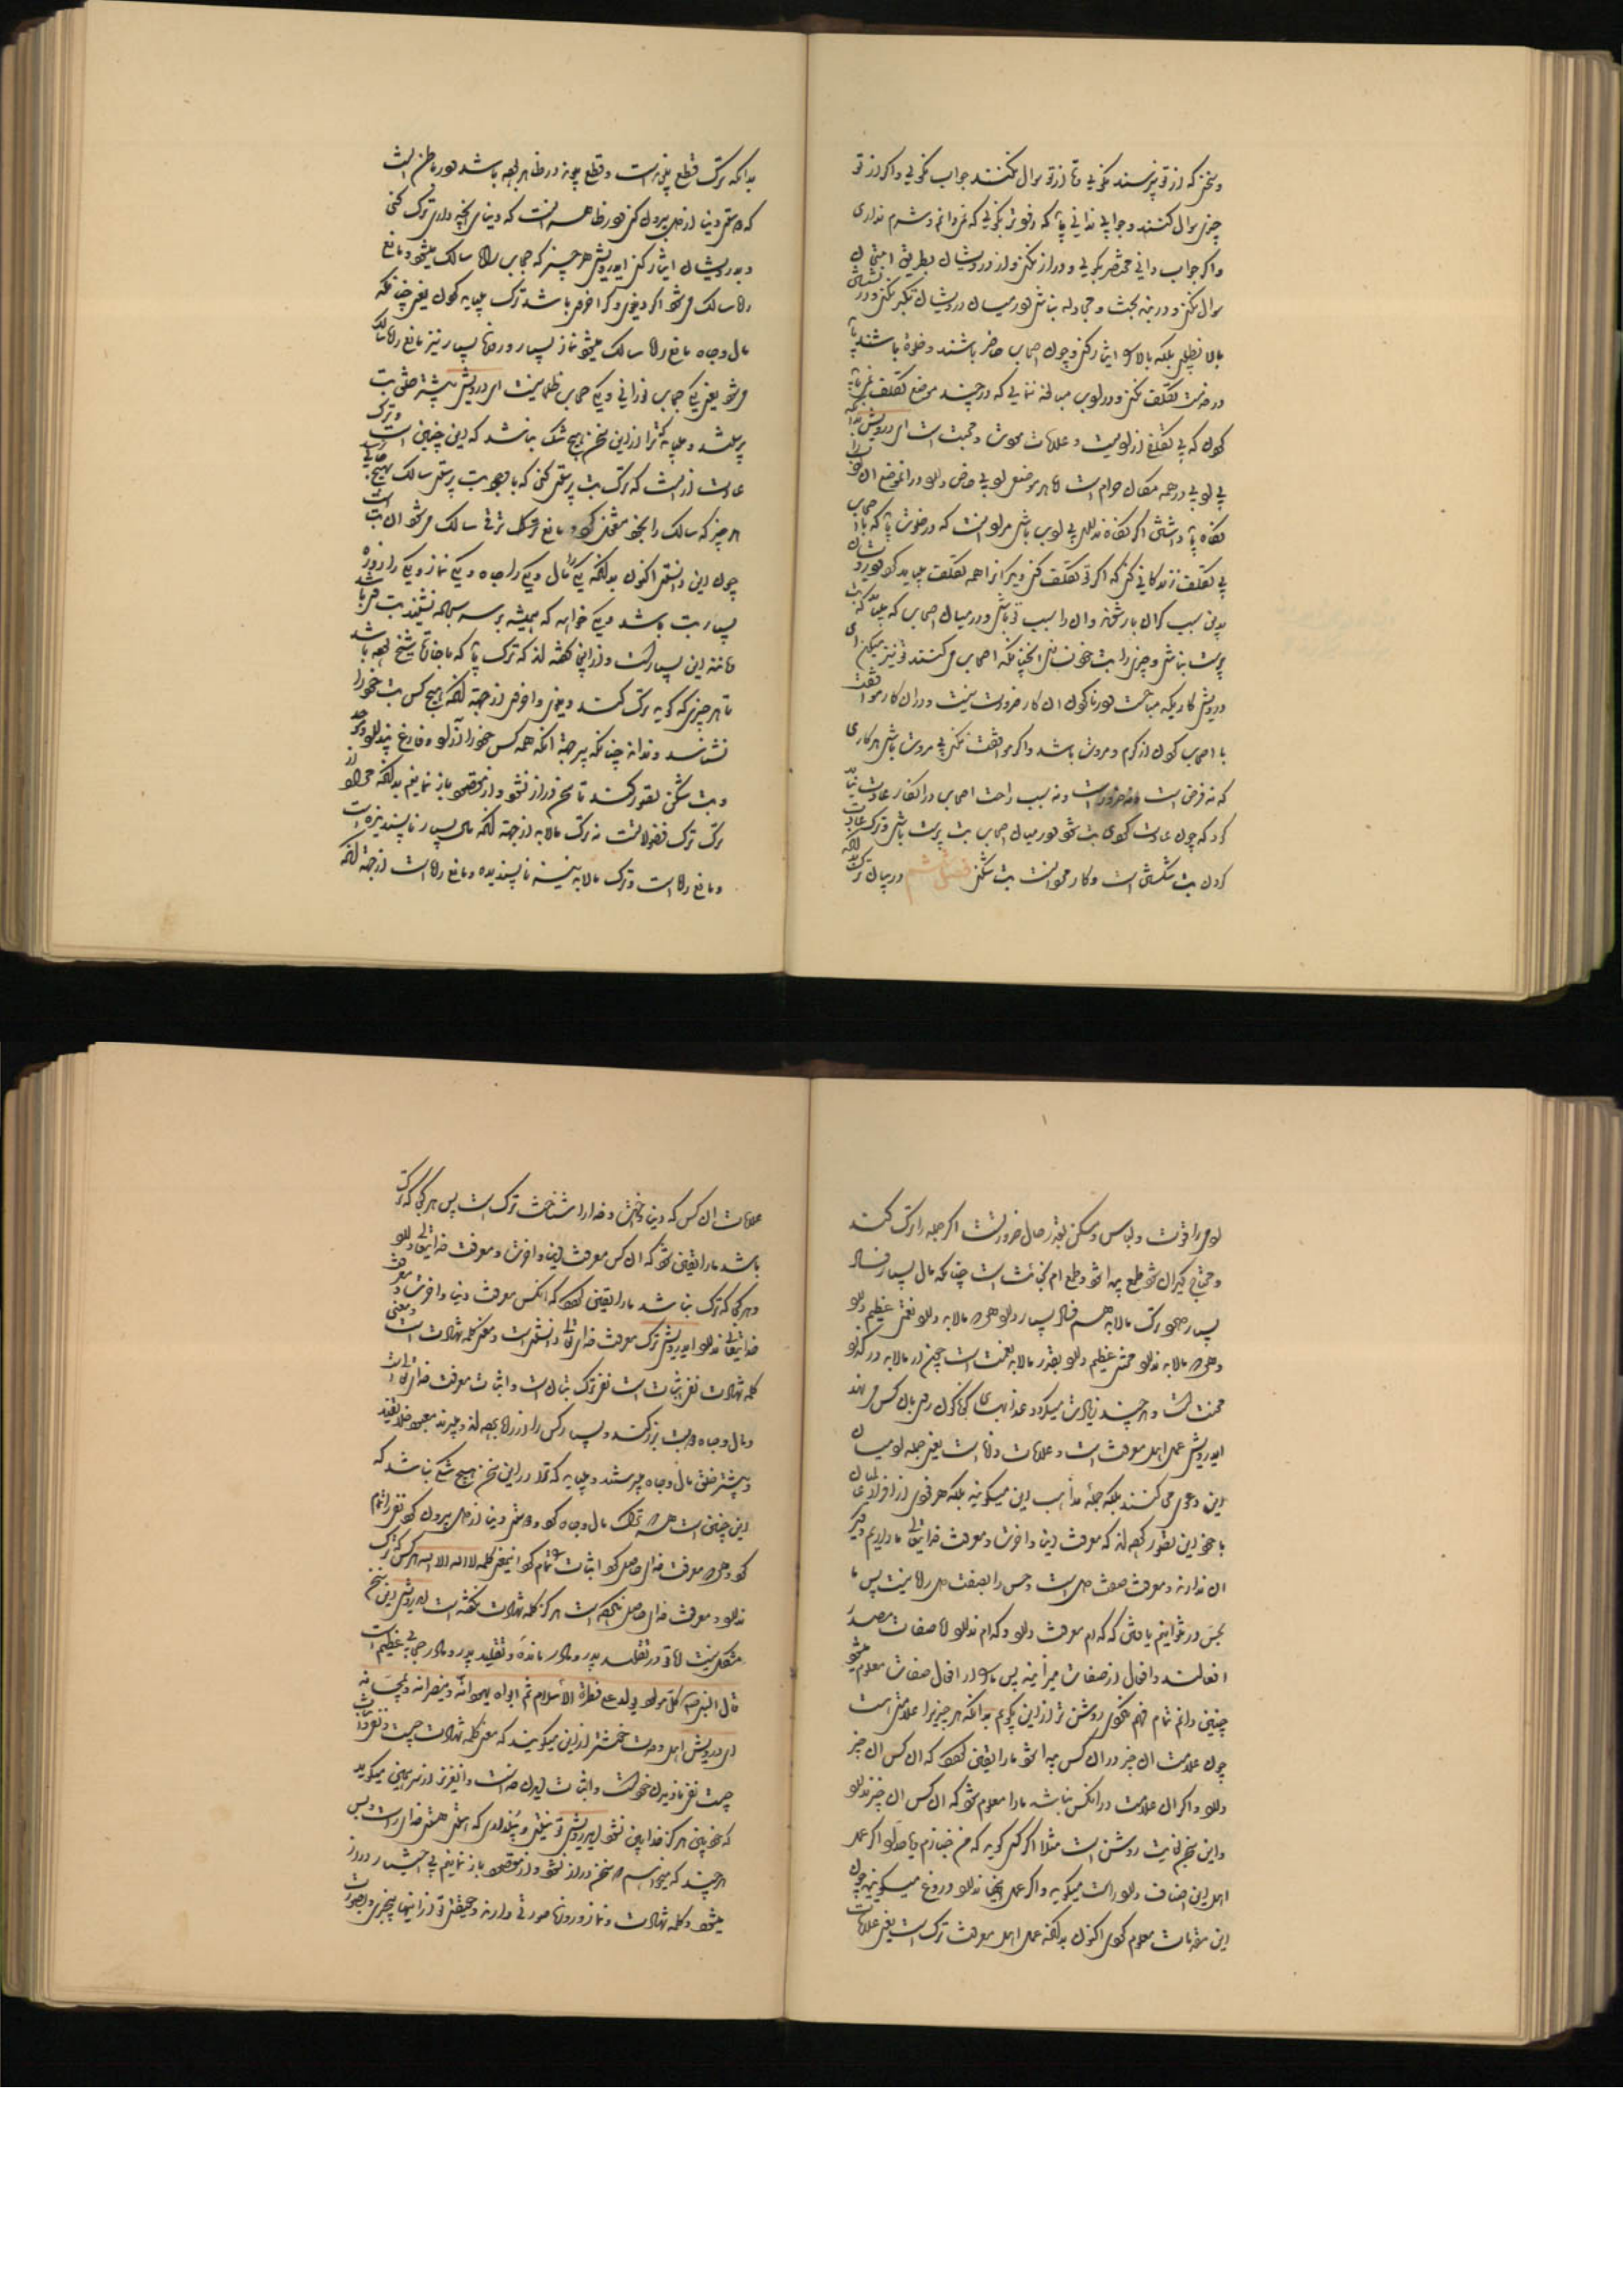 وسخنی که از تو نپرسند مگوی و تا از تو سوال نکنند جواب مگوی و اگر از تو
چیزی سوال کنند و جواب ندانی باید که زود بگویی که نمی‌دانم و شرم نداری
و اگر جواب دانی مختصر بگویی و دراز نکنی و از درویشان بطریق امتحان
سوال نکنی و در بند بحث و مجادله نباشی و در میان درویشان تکبر نکنی و در نشستن
بالا نطلبی بلکه بالا را ایثار کنی و چون اصحاب حاضر باشند و خلوة باشد باید
تکلف نکنی و در ادب مبالغه ننمایی که در چند موضع تکلف نمی باید
کردن که بی تکلفی آزادیست و علامات مودت و محبت است ای درویش نه آنکه
بی ادبی در همه مکان حرام است اما هر موضعی ادبی خاص دارد و در آن موضع آن را
نگاه باید داشتن اگر نگاه نداری بی ادب باشی مراد آنست که در خلوت باید که با اصحاب
بی تکلف زندگانی کنی که اگر تو تکلف کنی دیگرانرا هم تکلف بباید کردن و درویشان
بدین سبب گران بار شوند و آن را سبب تو باشی و در میان اصحاب که باید که بت
پرست نباشی و چیزی را بت خود نسازی آنچنانکه اصحاب می کنند تو نیز میکن ای
درویش کاریکه مباحست و در ناکردن آن کار ضرورت نیست و در آن کار موافقت
با اصحاب کردن از کرم و مروت باشد و اگر موافقت نکنی بی مروت باشی هر کاری
که نه فرض است و نه ضرورت و نه سبب راحت اصحاب در آن کار عادت نباید
کرد که چون عادت کردی بت شود و در میان اصحاب بت پرست باشی و ترک عادت
کردن بت شکستن است و کار مردانست بت شکنی فصل ششم در بیان ترک بدانکه
بدانکه ترک قطع پیوند است و قطع پیوند در ظاهر بود باشد و در باطن آنست
که دوستی دنیا از دل بیرون کنی و در ظاهر آنست که دنیای آنچه داری ترک کنی
و بدرویشان ایثار کنی ای درویش هر چیز که حجاب راه سالک میشود و مانع
راه سالک می شود اگر دنیوی و گر اخروی باشد ترک بباید کردن یعنی چنانکه
مال و جاه مانع راه سالک میشود نماز بسیار و روزه بسیار نیز مانع راه سالک
می شود یعنی یکی حجاب نورانی و یکی حجاب ظلمانیست ای درویش بیشتر خلق بت
پرستند و باید که ترا ازین سخن هیچ شک نباشد که این چنین است و ترک
عادت از آنست که ترک بت پرستی کنی که با وجود بت پرستی سالک بهیچ جایی نرسد
هر چیز که سالک را بخود مشغول کند و مانع ترقی سالک می شود آن بت است
چون این دانستی اکنون بدانکه یکی را مال و یکی را جاه و یکی نماز و یکی را روزه
بسیار بت باشد و یکی خواهد که همیشه بر سر سجاده نشیند بت می باشد
و مانند این بسیار است و ازینجا گفته اند که ترک باید که با اجازت شیخ بود باشد
تا هر چیزی که گوید ترک کنند دنیوی و اخروی از جهت آنکه هیچ کس بت خود را
نشناسد و نداند چنانکه بیرجهة آنکه همه کس خود را آزاد و فارغ پندارد و موحد
و بت شکن تصور کنند تا سخن دراز نشود و از مقصود باز نمانیم بدانکه مراد از
ترک ترک فضولاتست نه ترک مالابد از جهت آنکه مال بسیار ناپسندیده است
و مانع راه است و ترک مالابد نیز ناپسندیده و مانع راه است از جهت آنکه
آدمی را قوت و لباس و مسکن بقدر حال ضرورتست اگر جمله را ترک کند
و محتاج دیگران شود طمع پیدا شود و طمع ام الخبائث است چنانکه مال بسیار فساد
بسیار دارد ترک مالابد هم فساد بسیار دارد هر که مالابد دارد نعمتی عظیم دارد
و هر که مالابد ندارد محنتی عظیم دارد بقدر مالابد نعمت است چون از مالابد درگذرد
محنت است و هر چند زیادت میگردد عذابهای گوناگون روی بآن کس می نهد
ای درویش عمل اهل معرفت است و علامات دانا است یعنی جمله آدمیان
این دعوی می کنند بلکه جمله مذاهب این میگویند بلکه هر قومی از افراد ایشان
با خود این تصور کرده اند که معرفت دنیا و آخرت و معرفت خدای تعالی ما داریم و دیگر
آن ندارند و معرفت صفت دل است و حس را بصفت دل راه نیست پس ما
بحس در نتوانیم یافتن که کدام معرفت دارد و کدام ندارد اما صفات مصدر
افعالند و افعال از صفات می آیند پس ما را از افعال صفات معلوم میشود
چنین دانم تمام فهم نکردی روشن تر ازین بگویم بدانکه هر چیزیرا علامتی است
چون علامت آن چیز در آن کس پیدا شود ما را یقین گردد که آن کس آن چیز
دارد و اگر آن علامت در آن کس نباشد ما را معلوم شود که آن کس آن چیز ندارد
و این سخن بغایت روشن است مثلا اگر کسی گوید که من خبازم یا حدادم اگر عمل
اهل این اصناف دارد راست میگوید و اگر عمل اینها ندارد دروغ میگوید چون
این مقدمات معلوم کردی اکنون بدانکه عمل اهل معرفت ترک است یعنی علامات
علامات آن کس که دنیا و آخرت و خدا را شناخت ترک است پس هر کرا که ترک
باشد ما را یقین شود که آن کس معرفت دنیا و آخرت و معرفت خدایتعالی دارد
و هر کرا که ترک نباشد ما را یقین گردد که آنکس معرفت دنیا و آخرت و معرفت
خدایتعالی ندارد ای درویش ترک معرفت خدای تعالی دانستن است و معنی کلمه شهادت است و معنی
کلمه شهادت نفی و اثبات است نفی ترک بتان است و اثبات معرفت خدای تعالی است
و مال و جاه دو بت بزرگند و بسیار کس را از راه برده اند و میبرند معبود خلایقند
و بیشتر خلق مال و جاه می پرستند و باید که ترا درین سخن هیچ شک نباشد که
این چنین است هر که ترک مال و جاه کرد و دوستی دنیا از دل بیرون کرد نفی را تمام
کرد و هر که معرفت خدای حاصل کرد اثبات را تمام کرد اینست معنی کلمه لا اله الا الله هر کس که ترک
ندارد و معرفت خدای حاصل نکرده است هرگز کلمه شهادت نگفته است ای درویش این سخن
مشکل نیست اما تو در تقلید پدر و مادر مانده و تقلید پدر و مادر حجابی عظیم است
قال النبی ص کل مولود یولد علی فطرة الاسلام ثم ابواه یهودانه و ینصرانه و یمجسانه
ای درویش اهل وحدت خوشتر ازین میگویند که معنی کلمه شهادت چیست و نفی و اثبات
چیست نفی نادیدن خودست و اثبات دیدن خداست و آن عزیز از سر همین میگوید
که خودبین هرگز خدابین نشود ای درویش تو نیستی و پنداری که هستی هستی خدای راست و بس
هر چند که میخواهم که سخن دراز نشود و از مقصود باز نمانیم بی اختیار دراز
میشود و کلمه شهادت و نماز و روزه صورتی دارند و حقیقتی تو از اینها بیخبری و بصورت